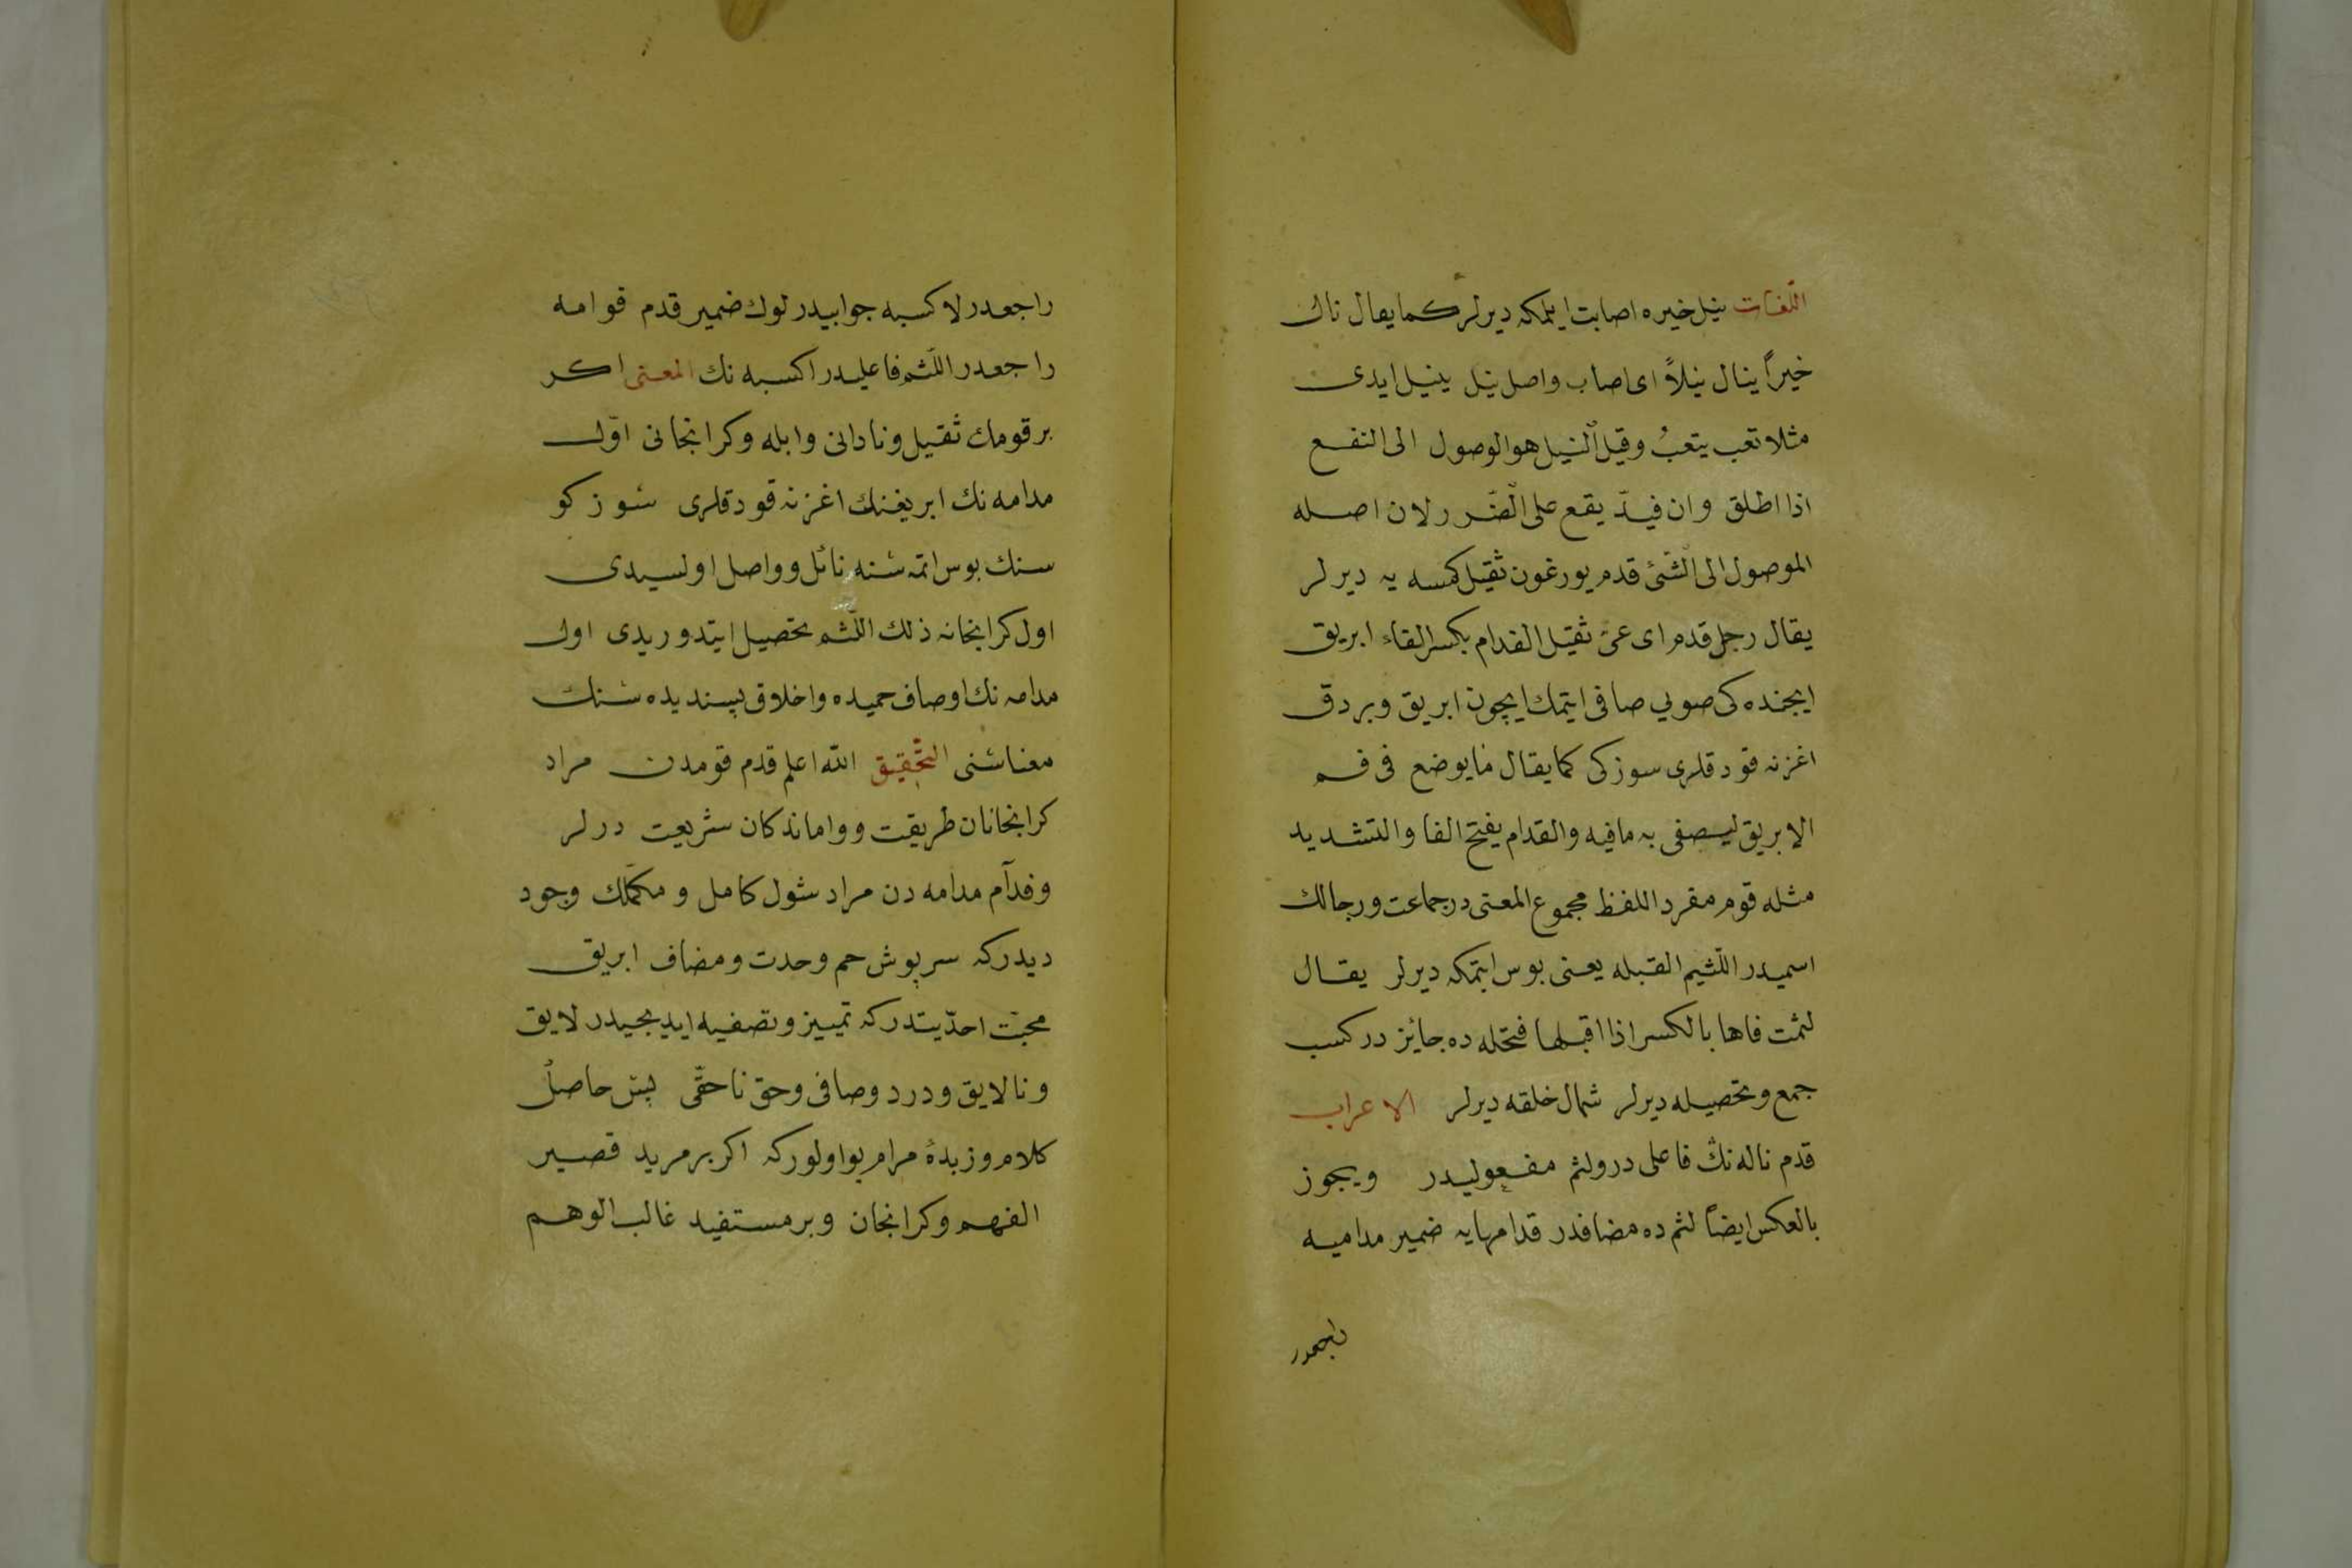 اللغات نيل خيره اصابت ايلمكه ديرلر كما يقال نال
خيراً ينال نيلاً اى اصاب واصل نيل ينيل ايدى
مثلا تعب يتعبُ وقيل النيل هو الوصول الى النفع
اذا اطلق وان قيدّ يقع على الضّرر لان اصله
الموصول الى الشّئ قدم يورغون ثقيل كمسه يه ديرلر
يقال رجل قدم اى عىّ ثقيل الفدام بكسر الفاء ابريق
ايچنده كى صويي صافى ايتمك ايچون ابريق وبردق
اغزنه قودقلرى سوزكى كما يقال مايوضع فى فم
الابريق ليصفى به مافيه والقدام بفتح الفا والتشديد
مثله قوم مفرد اللفظ مجموع المعنى در جماعت ورجالك
اسميدر اللثيم القبله يعنى بوس ايتمكه ديرلر يقال
لثمت فاها بالكسر اذا اقبلها فتحله ده جايز در كسب
جمع وتحصيله ديرلر شمال خلقه ديرلر الاعراب
قدم ناله نڭ فاعلى در ولثم مفعوليدر ويجوز
بالعكس ايضاً لثم ده مضافدر قدامهايه ضمير مداميه
راجعدر
راجعدر لاكسبه جوابيدر لوك ضمير قدم قوامه
راجعدر اللّثم فاعليدر اكسبه نك المعنى اكر
بر قومك ثقيل ونادانى وابله وكرانجانى اوّل
مدامه نك ابريغنك اغزنه قودقلرى سوزكو
سنك بوس اتمه سنه نائل وواصل اولسيدى
اول كرانجانه ذلك اللّثم تحصيل ايتدوريدى اول
مدامه نك اوصاف حميده واخلاق پسنديده سنك
معناسنى التّحقيق الله اعلم قدم قومدن مراد
كرانجانان طريقت وواماندكان شريعت درلر
وفدآم مدامه دن مراد شول كامل ومكمّلك وجود
ديدركه سرپوش خم وحدت ومضاف ابريق
محبّت احدّيتدركه تمييز وتصفيه ايديجيدر لايق
ونالايق ودرد وصافى وحق ناحقّى پس حاصلُ
كلام وزبدهٔ مرام بو اولوركه اكر بر مريد قصير
الفهم وكرانجان وبر مستفيد غالب الوهم